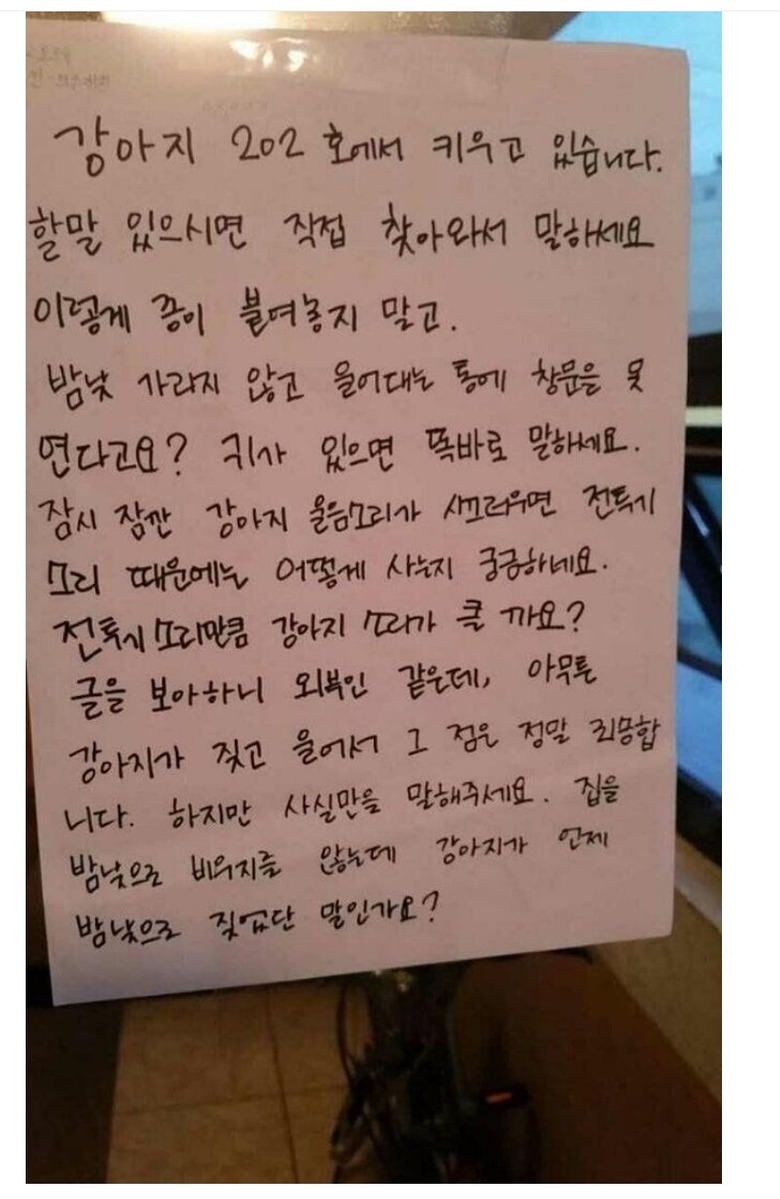 강아지 202 호에서 키우고 있습니다.
할말 있으시면 직접 찾아와서 말하세요
이렇게 종이 붙여놓지 말고.
밤낮 가리지 않고 울어대는 통에 창문을 못
연다고요? 귀가 있으면 똑바로 말하세요.
잠시 잠깐 강아지 울음소리가 시끄러우면 전투기
소리 때문에는 어떻게 사는지 궁금하네요.
전투기 소리만큼 강아지 소리가 클 까요?
글을 보아하니 외부인 같은데, 아무튼
강아지가 짖고 울어서 그 점은 정말 죄송합
니다. 하지만 사실만을 말해주세요. 집을
밤낮으로 비우지를 않는데 강아지가 언제
밤낮으로 짖었단 말인가요?